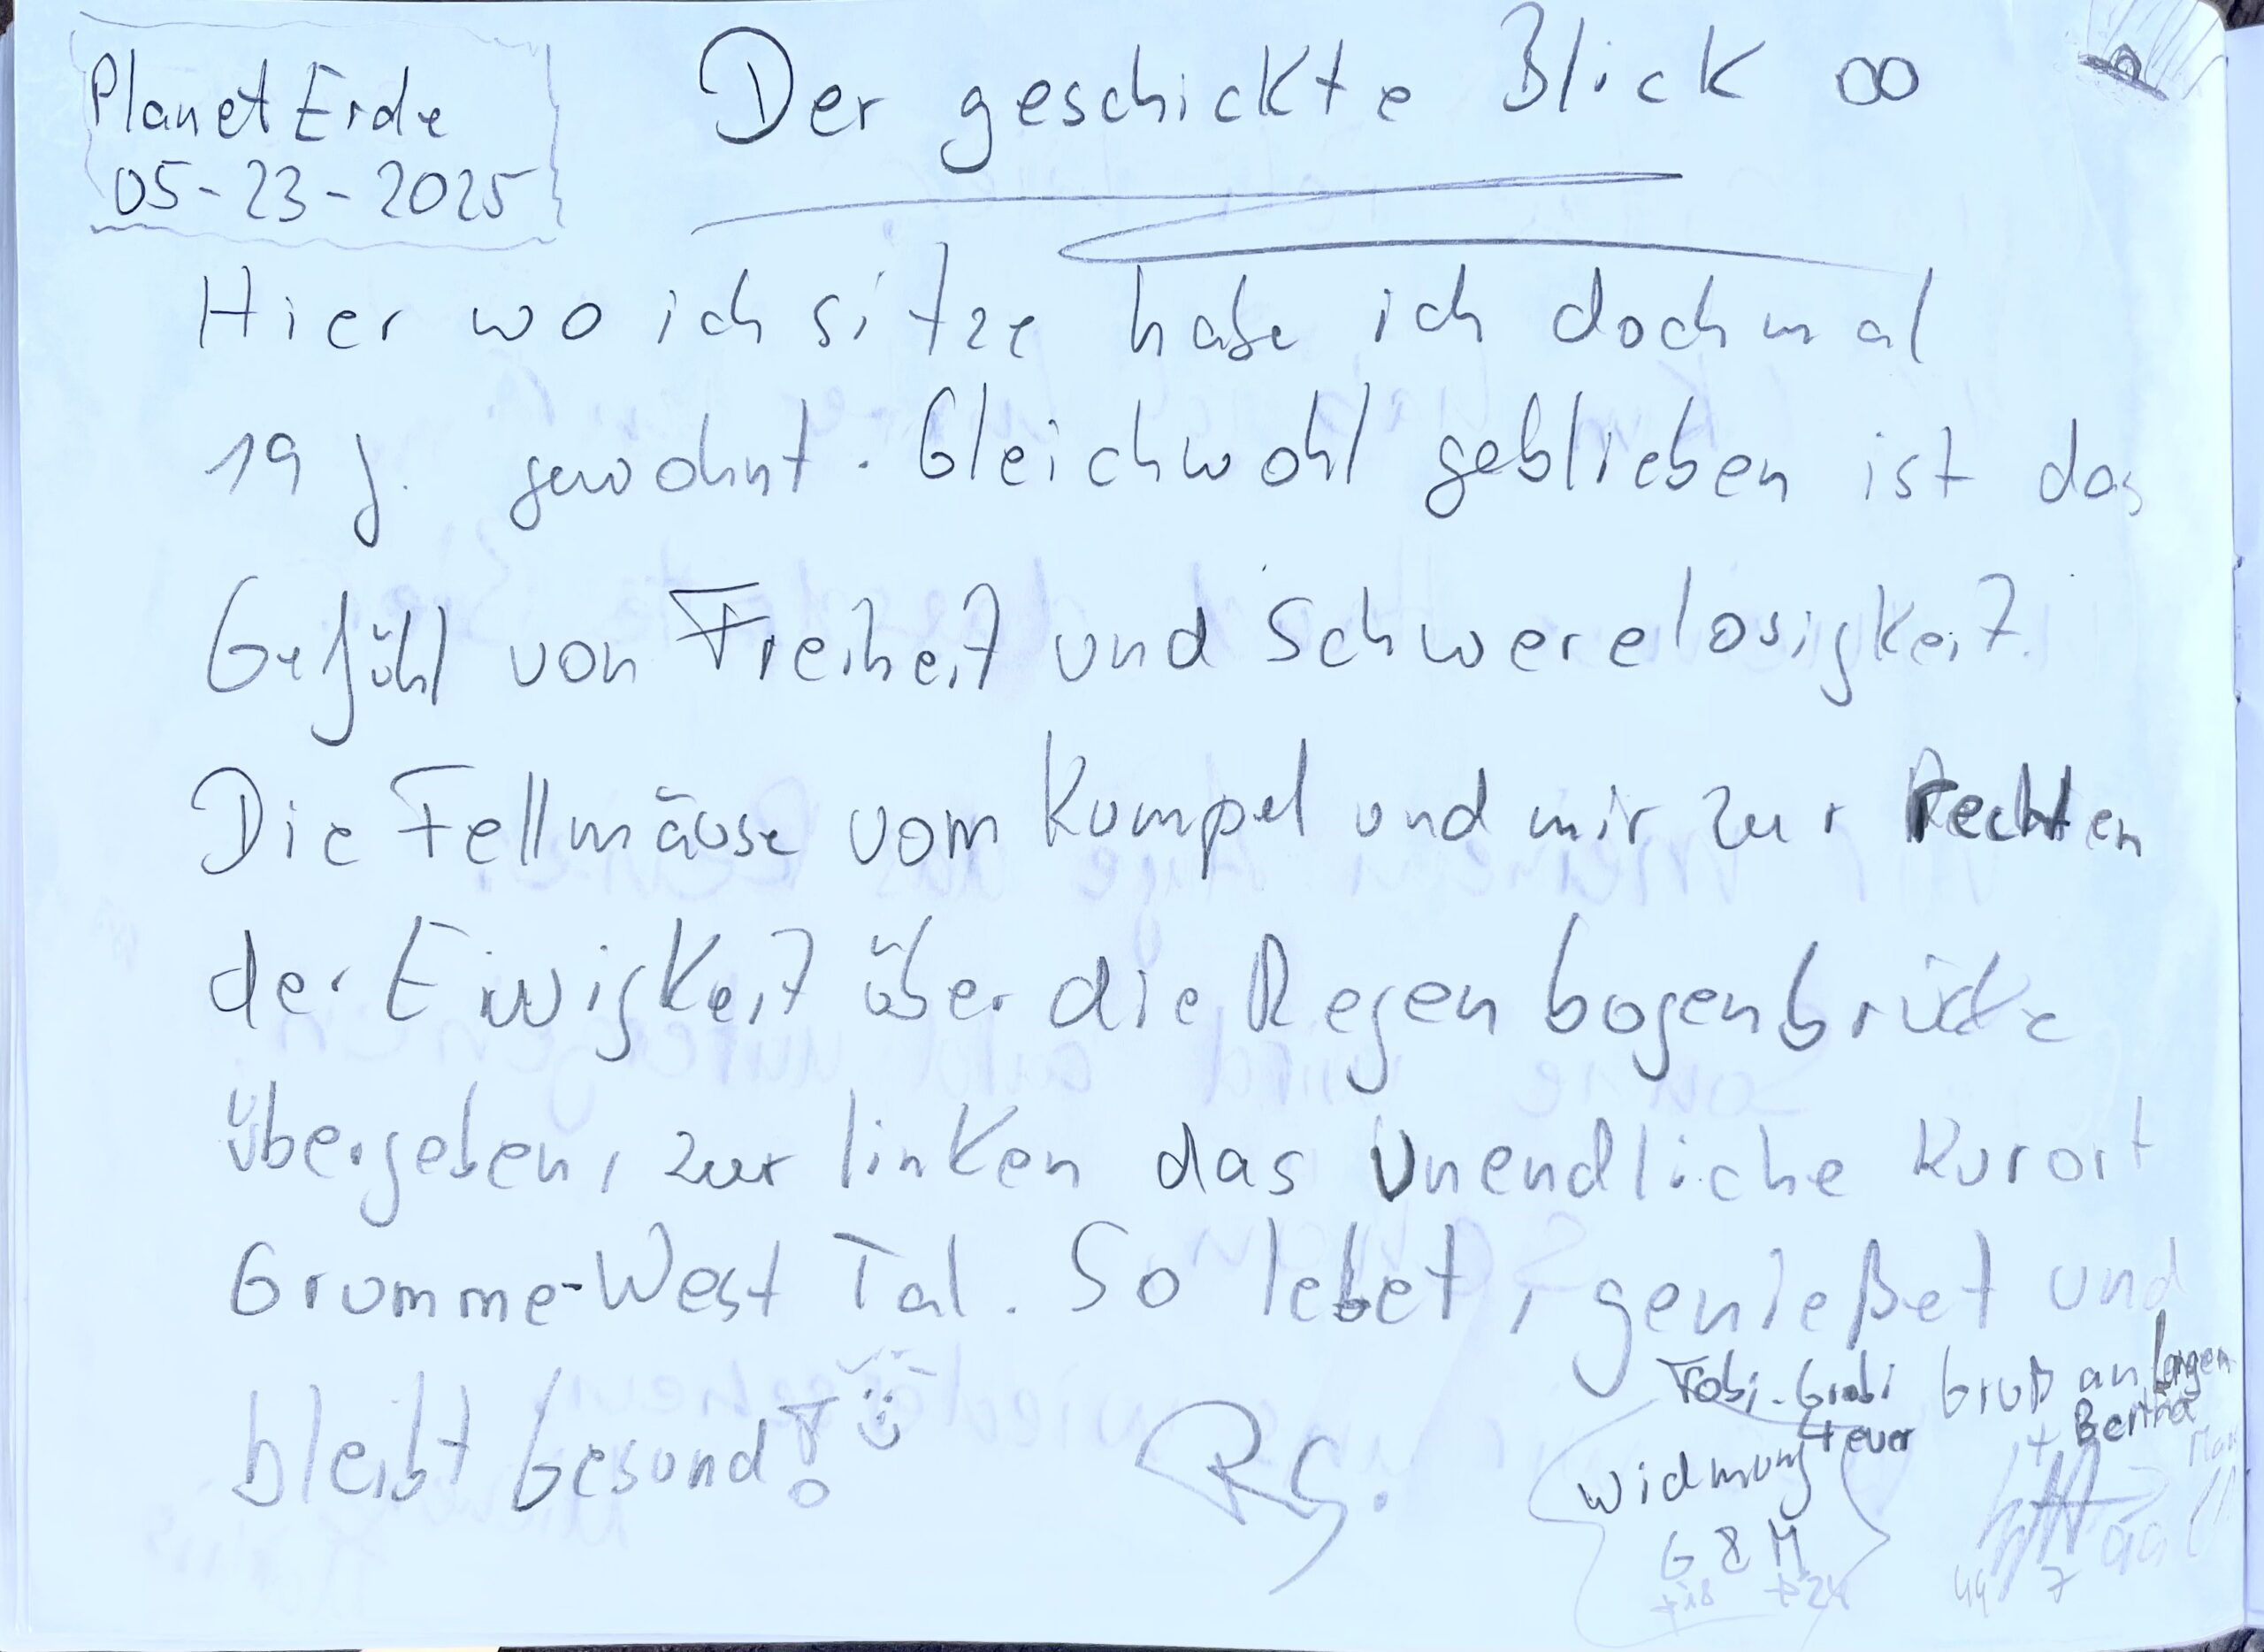 Planet Erde
05-23-2025
Der geschickte Blick ∞
Hier wo ich sitze habe ich doch mal
19 J. gewohnt. Gleichwohl geblieben ist das
Gefühl von Freiheit und Schwerelosigkeit.
Die Fellmäuse vom Kumpel und mir zur Rechten
der Ewigkeit über die Regenbogenbrücke
übergeben, zur linken das Unendliche Kurort
Grumme-West Tal. So lebet, genießet und
bleibt Gesund!
RG.
Tobi-Grabi
4 ever
Gruß an langen
+ Bertha
Widmung
G & M